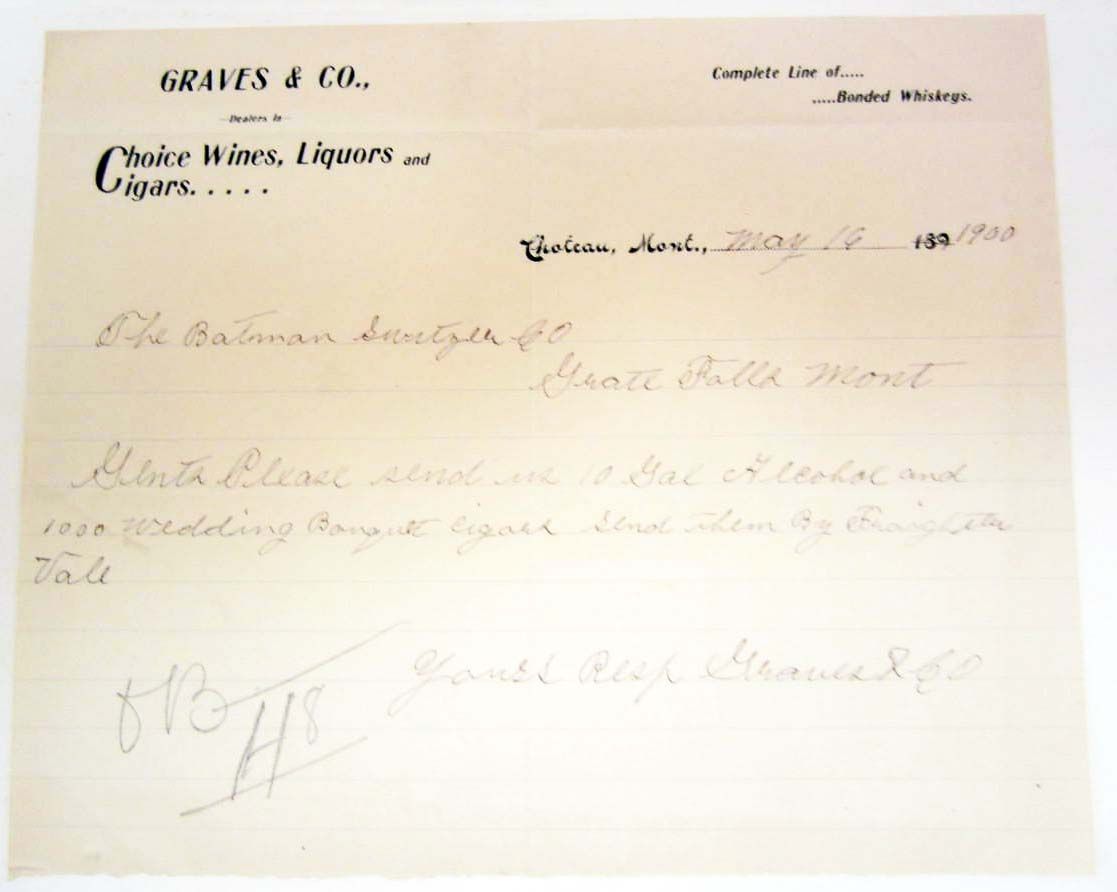 GRAVES & CO.,
Complete Line of.....
—Dealers in—
.....Bonded Whiskeys.
Choice Wines, Liquors and
Cigars.....
Choteau, Mont., May 16 189 1900
The Batman Switzer Co
Grate Falls Mont
Gents Please send us 10 Gal Alcohol and
1000 Wedding Bouquet Cigars send them By Fraighter
Vale
Yours Resp Graves & Co
B
H8